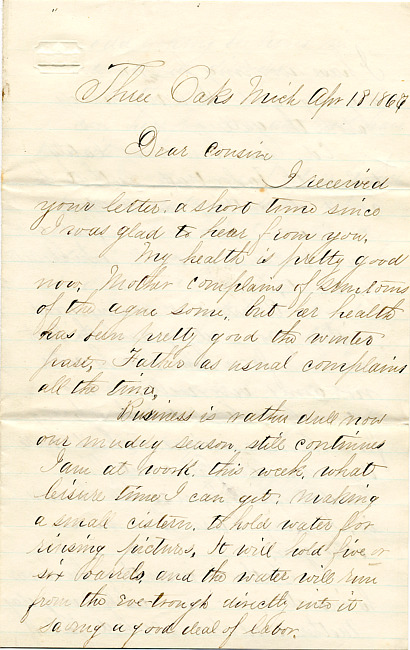 Three Oaks Mich Apr 18 1867
Dear Cousin
I received
your letter. a short time since
I was glad to hear from you.
My health is pretty good
now. Mother complains of simtoms
of the ague some, but her health
has been pretty good the winter
past, Father as usual complains
all the time,
Business is rather dull now
our mudey season. still continues
I am at work. this week, what
leisure time I can get. making
a small cistern. to hold water for
pictures, It will hold five or
six barrels, and the water will run
from the Eve-trough directly into it
saving a good deal of labor.